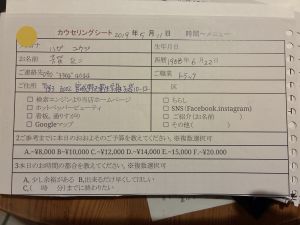 カウセリングシート 2019年5月11日 時間〜メニュー
ハガ ユウジ 生年月日
お名前 西暦1988年6月22日
ご連絡先 ご職業
ご住所 区
□ 検索エンジンより当店ホームページ □ ちらし
□ ホットペッパービューティ □ SNS (Facebook.instagram)
□ 看板、通りすがり □ ご紹介 (お名前 )
□ Googleマップ □ その他 ( )
2ご参考までに本日のおおよそのご予算を教えてください。※複数選択可
A.~¥8,000 B~¥10,000 C.~¥12,000 D.~¥14,000 E.~15,000 F.~¥20,000
3本日のお時間の都合を教えてください。※複数選択可
A, 少し余裕がある B,出来るだけ早くしてほしい
C,( 時 分)までに終わりたい